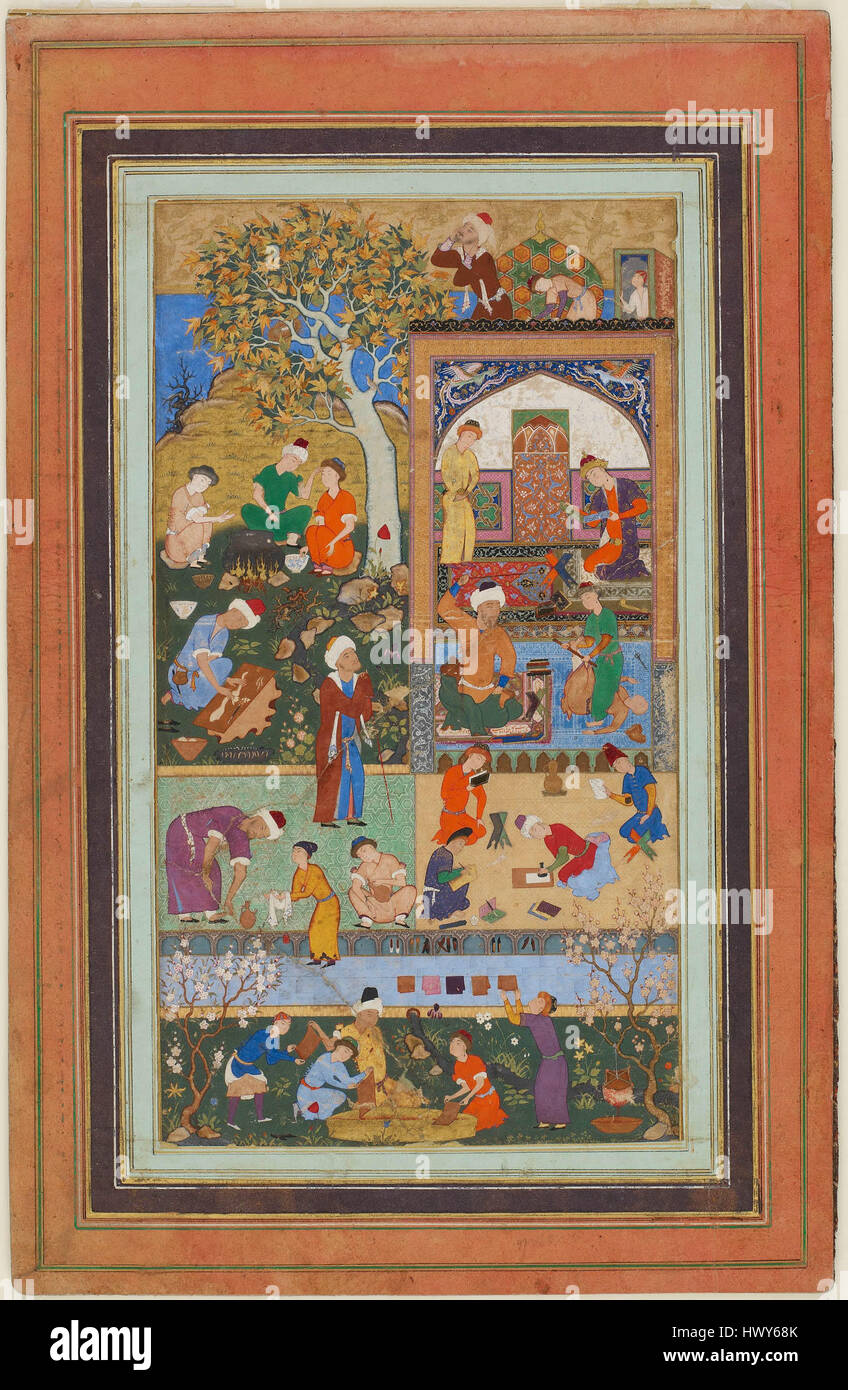 alamy
Image ID: HWY68K
www.alamy.com